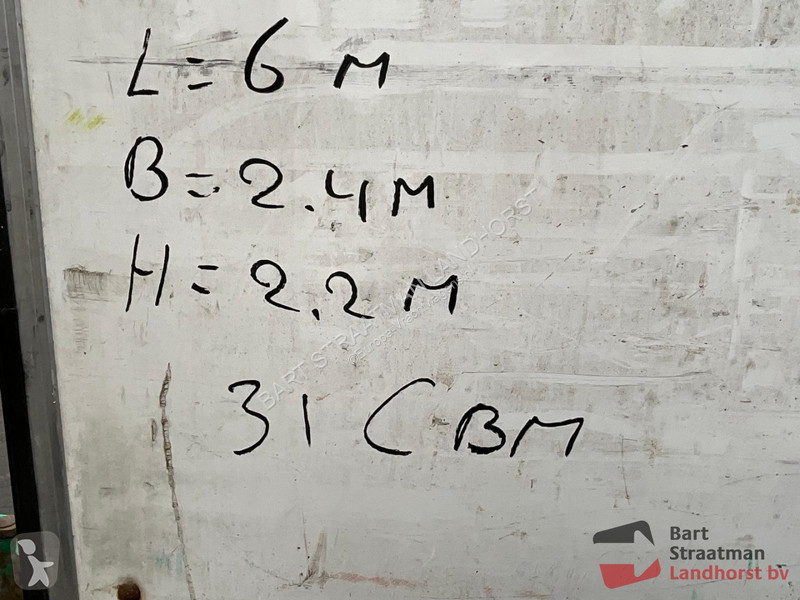 L = 6 M
B = 2.4 M
H = 2.2 M
31 CBM
BART STRAATMAN LANDHORST
Bart
Straatman
Landhorst bv